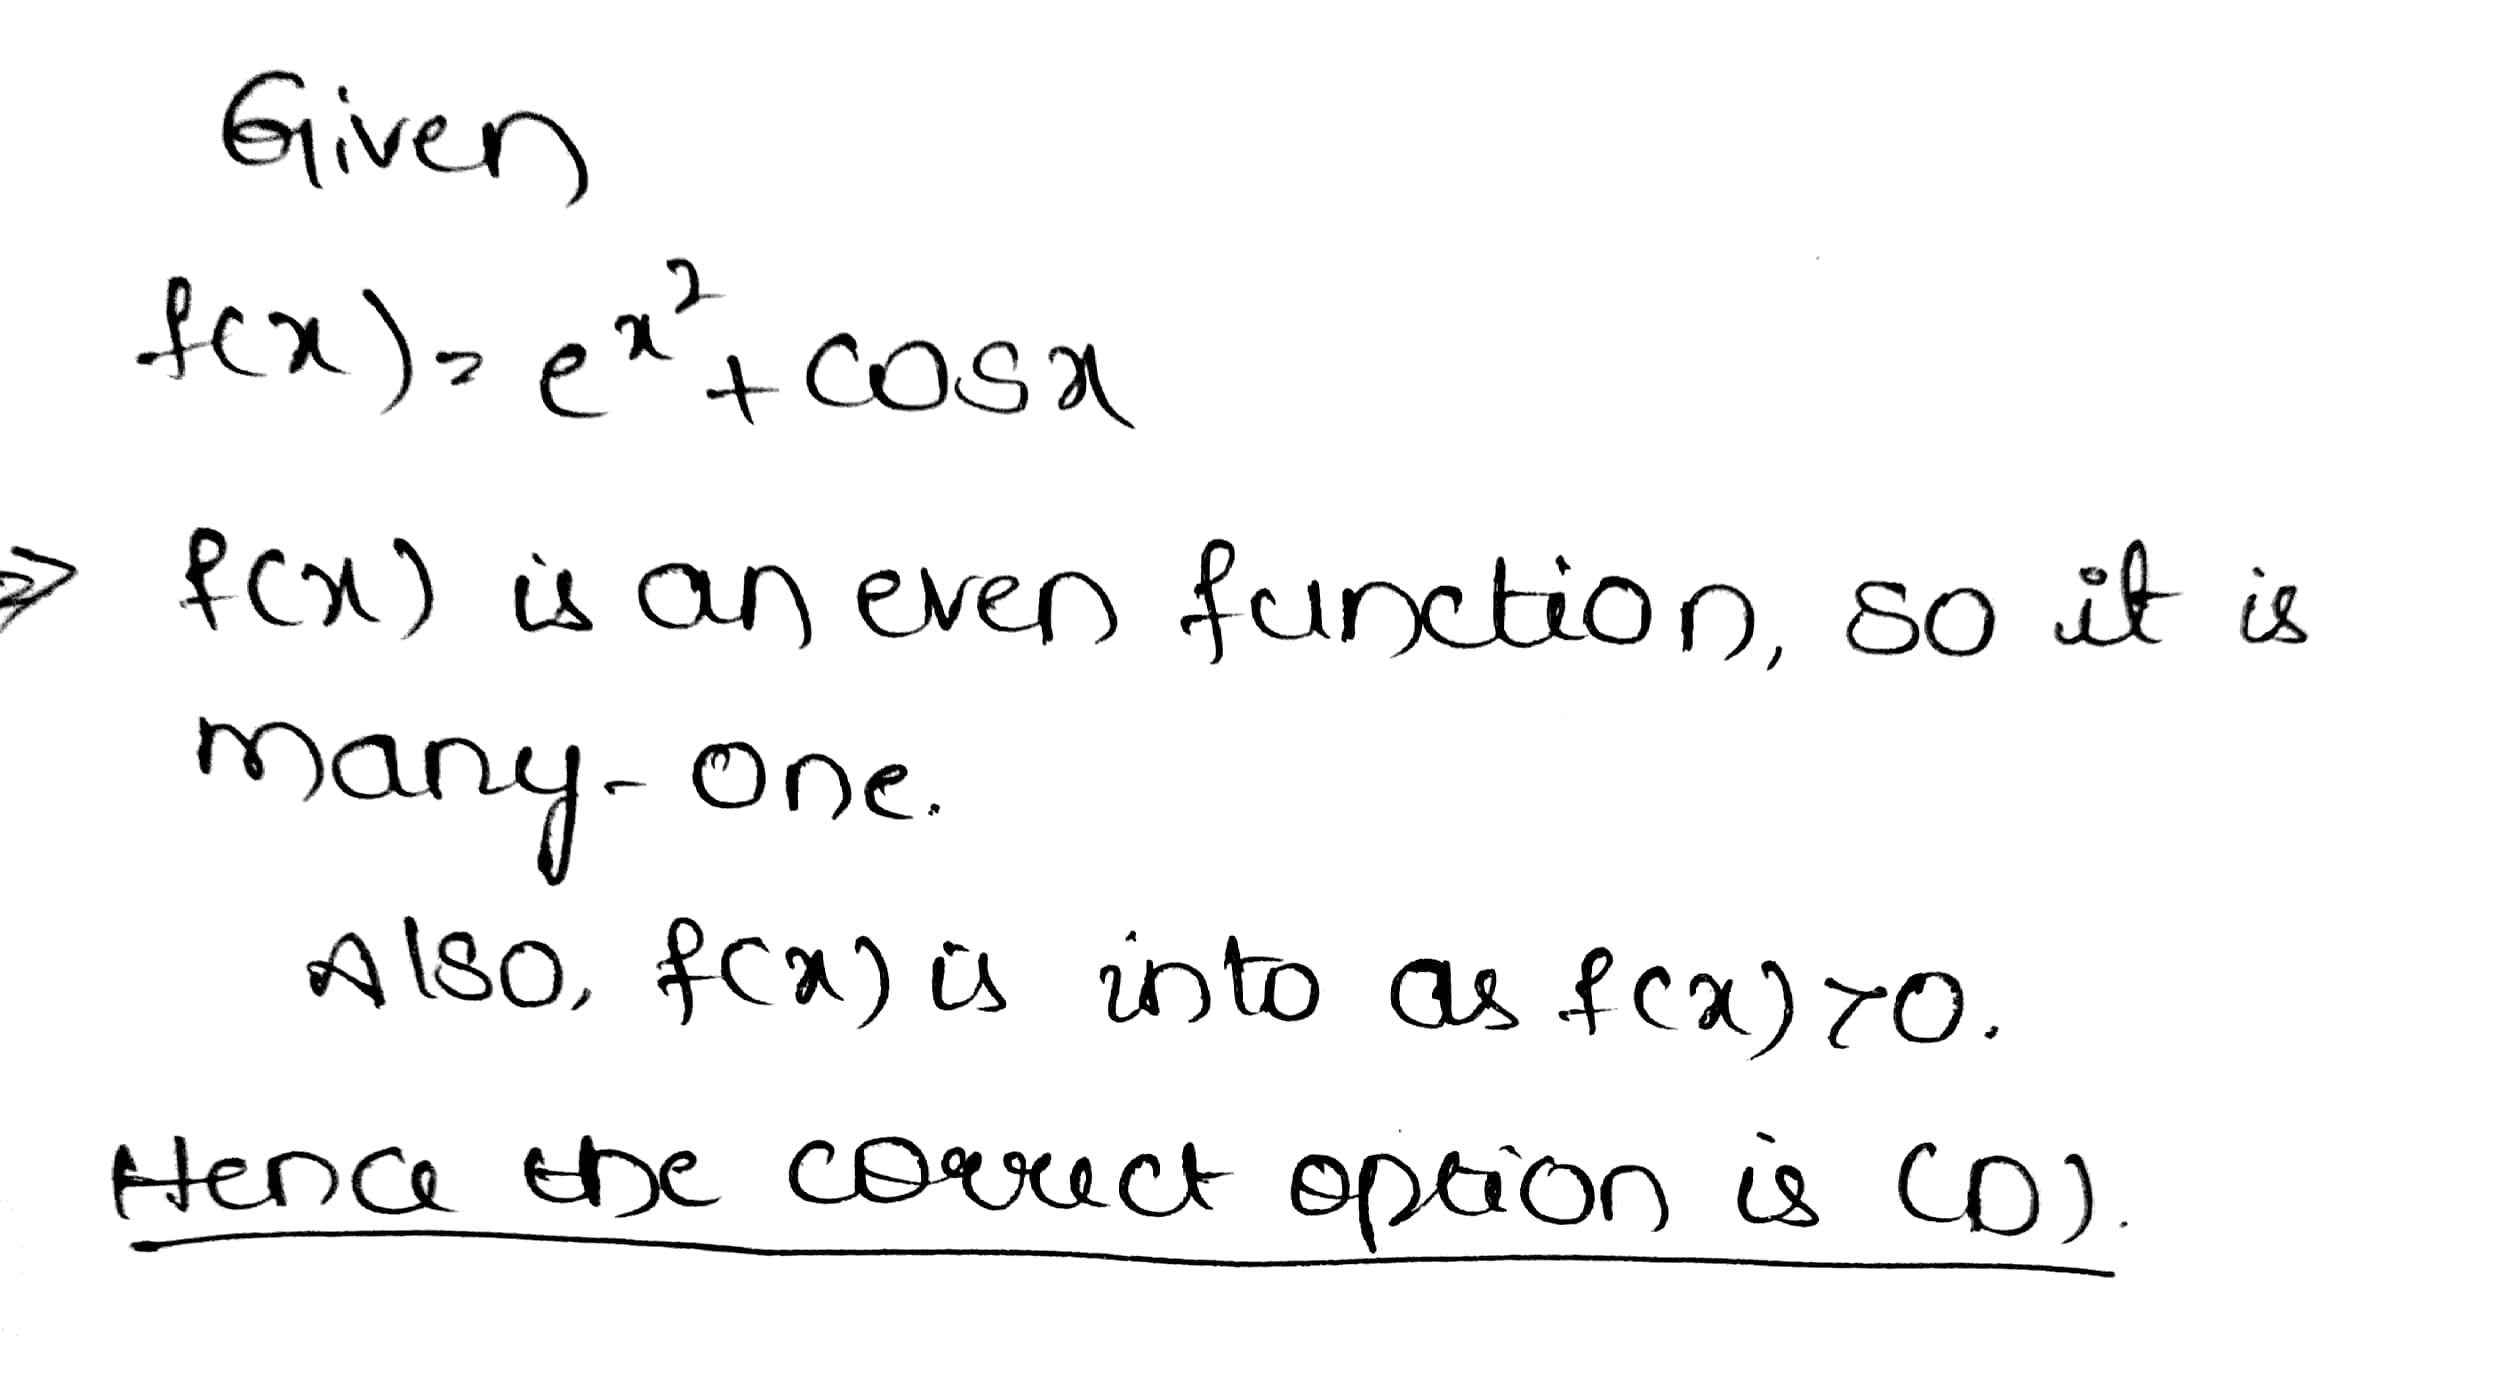 Given
f(x) = e^{x^2} + cosx
⇒ f(x) is an even function, so it is
many-one.
Also, f(x) is into as f(x) > 0.
Hence the correct option is (D).